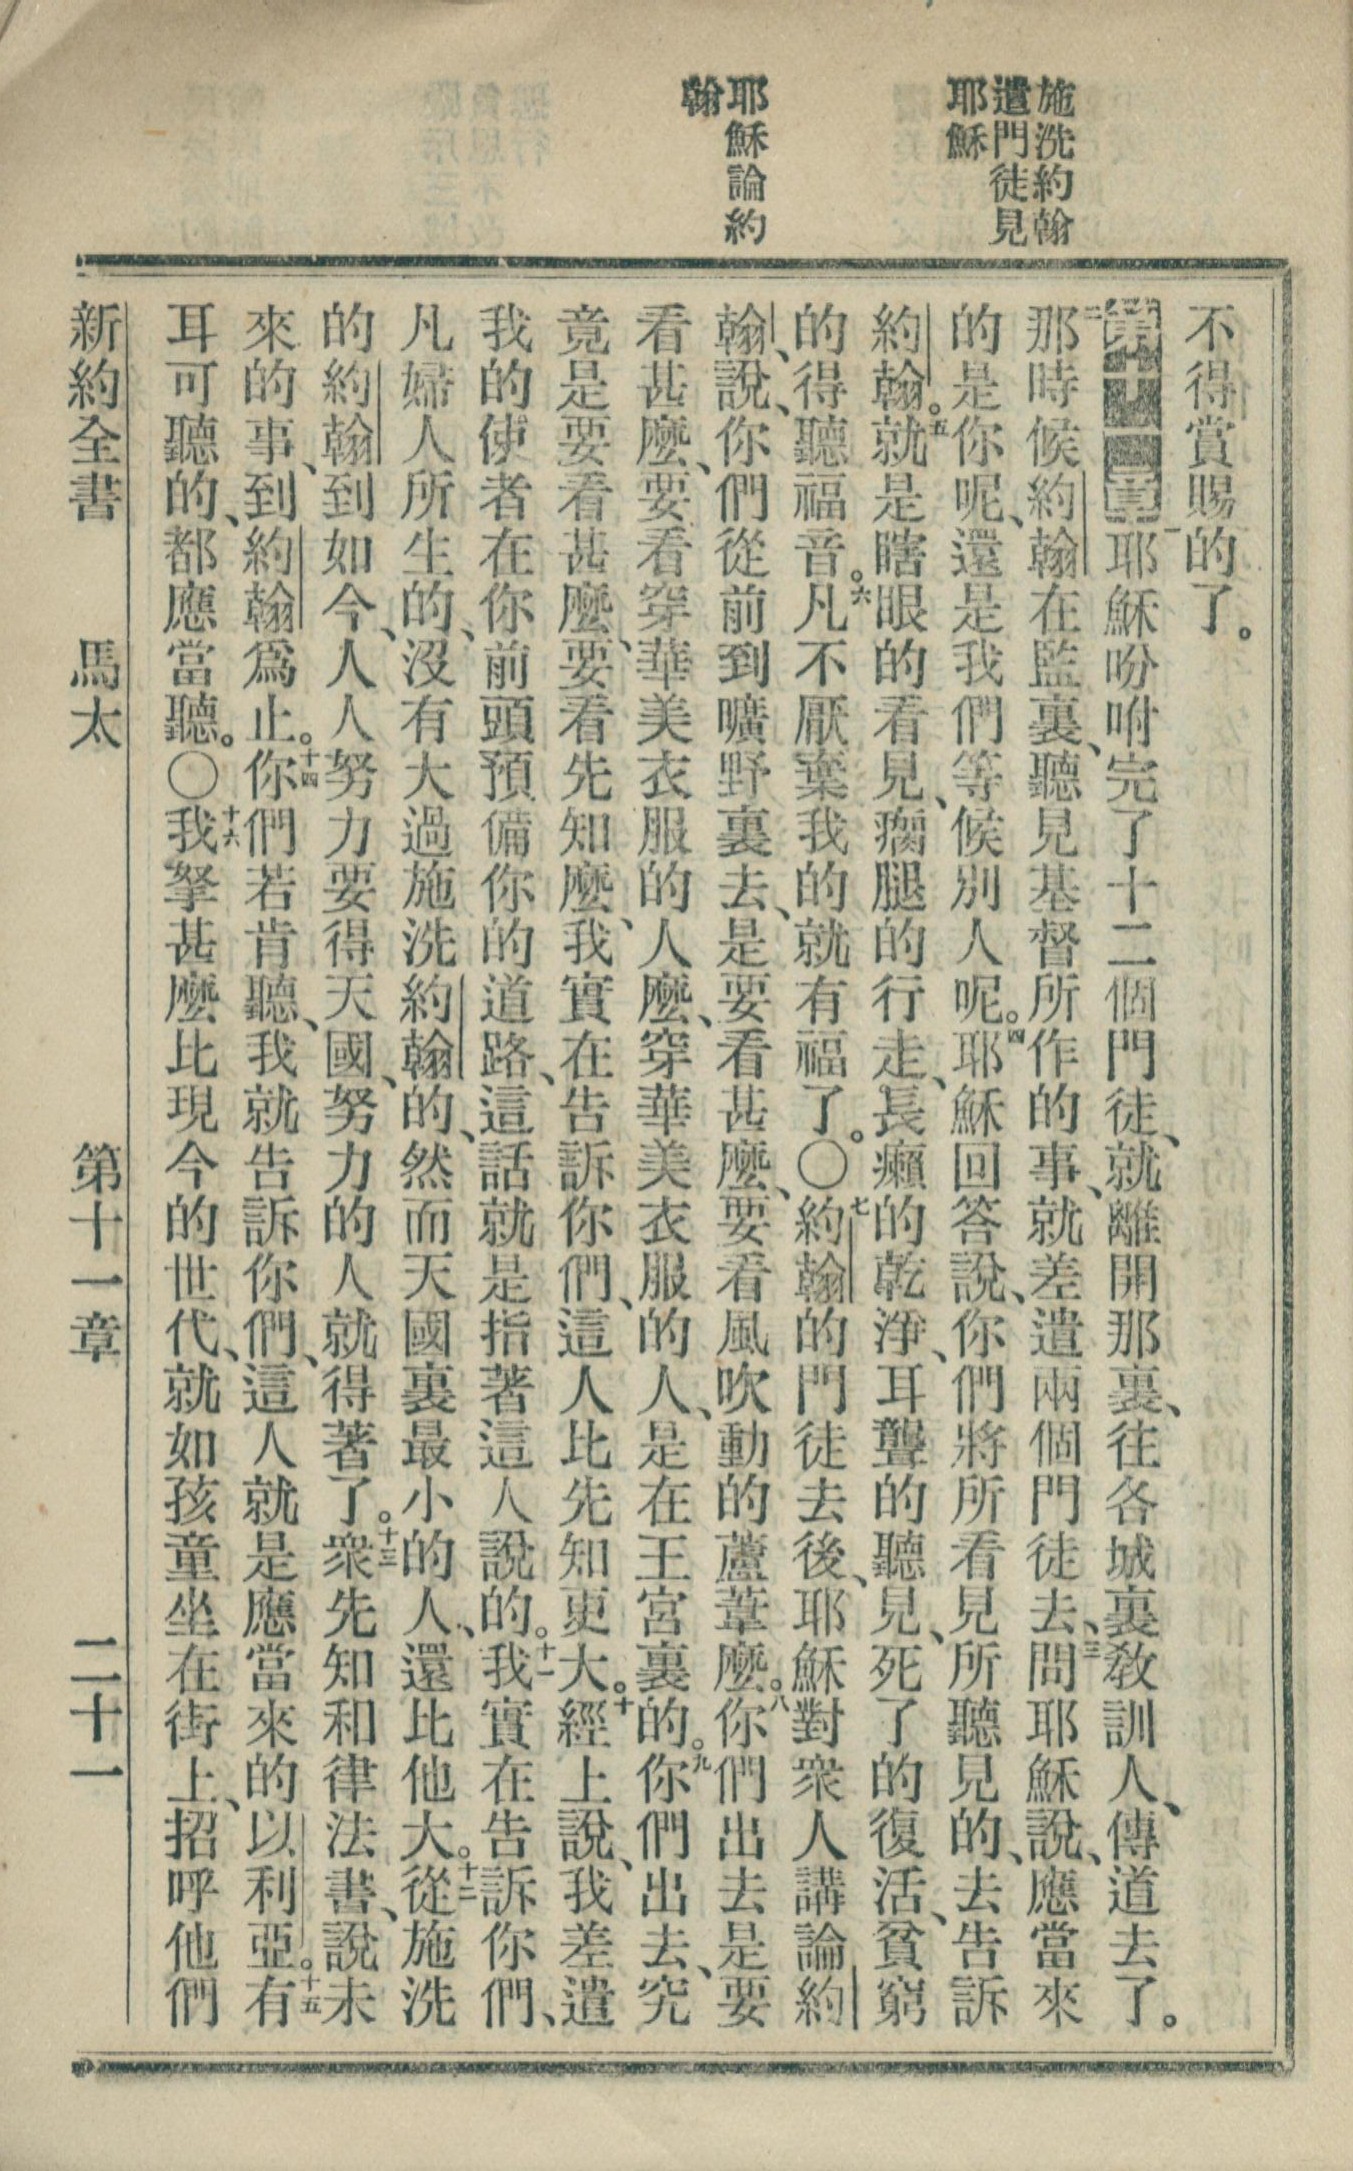 施洗約翰
遣門徒見
耶穌
耶穌論約
翰
不得賞賜的了。
第十一章一耶穌吩咐完了十二個門徒、就離開那裏、往各城裏教訓人、傳道去了。
二那時候約翰在監裏、聽見基督所作的事、就差遣兩個門徒去、三問耶穌說、應當來
的是你呢、還是我們等候別人呢。四耶穌回答說、你們將所看見所聽見的、去告訴
約翰。五就是瞎眼的看見、瘸腿的行走、長癩的乾淨、耳聾的聽見、死了的復活、貧窮
的得聽福音。六凡不厭棄我的就有福了。〇七約翰的門徒去後、耶穌對衆人講論約
翰、說、你們從前到曠野裏去、是要看甚麼、要看風吹動的蘆葦麼。八你們出去是要
看甚麼、要看穿華美衣服的人麼、穿華美衣服的人、是在王宮裏的。九你們出去、究
竟是要看甚麼、要看先知麼、我實在告訴你們、這人比先知更大。十經上說、我差遣
我的使者在你前頭預備你的道路、這話就是指著這人說的。十一我實在告訴你們、
凡婦人所生的、沒有大過施洗約翰的、然而天國裏最小的人、還比他大。十二從施洗
的約翰到如今、人人努力要得天國、努力的人就得著了。十三衆先知和律法書、說未
來的事、到約翰爲止。十四你們若肯聽、我就告訴你們、這人就是應當來的以利亞。十五有
耳可聽的、都應當聽。〇十六我拏甚麼比現今的世代、就如孩童坐在街上、招呼他們
新約全書 馬太 第十一章 二十一